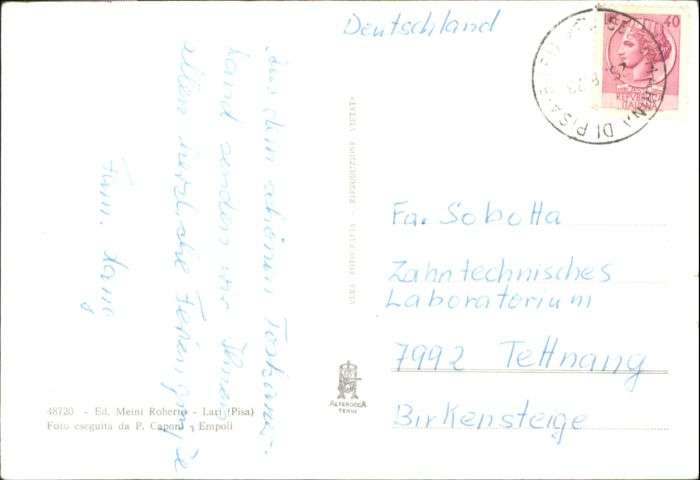 Deutschland
40
REPUBBLICA
ITALIANA
MARINA DI PISA
Aus dem schönen Toskana-
land senden wir Ihnen
allen herzliche Feriengrüße
Fam. Lang
Fa. Sobotta
Zahntechnisches
Laboratorium
7992 Tettnang
Birkensteige
ALTEROCCA
TERNI
48720 - Ed. Meini Roberto - Lari (Pisa)
Foto eseguita da P. Caponi - Empoli